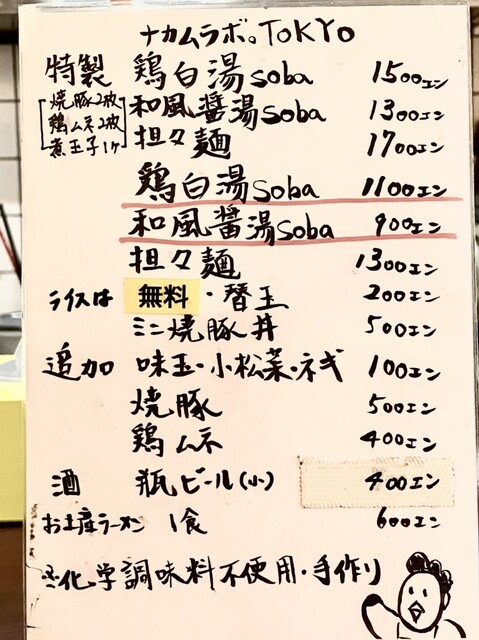 ナカムラボ。TOKYO
特製 鶏白湯soba 1500エン
焼豚2枚 和風醤湯soba 1300エン
鶏ムネ2枚
煮玉子1ヶ 担々麺 1700エン
鶏白湯soba 1100エン
和風醤湯soba 900エン
担々麺 1300エン
ライスは 無料・替玉 200エン
ミニ焼豚丼 500エン
追加 味玉・小松菜・ネギ 100エン
焼豚 500エン
鶏ムネ 400エン
酒 瓶ビール(小) 400エン
お土産ラーメン 1食 600エン
※化学調味料不使用・手作り